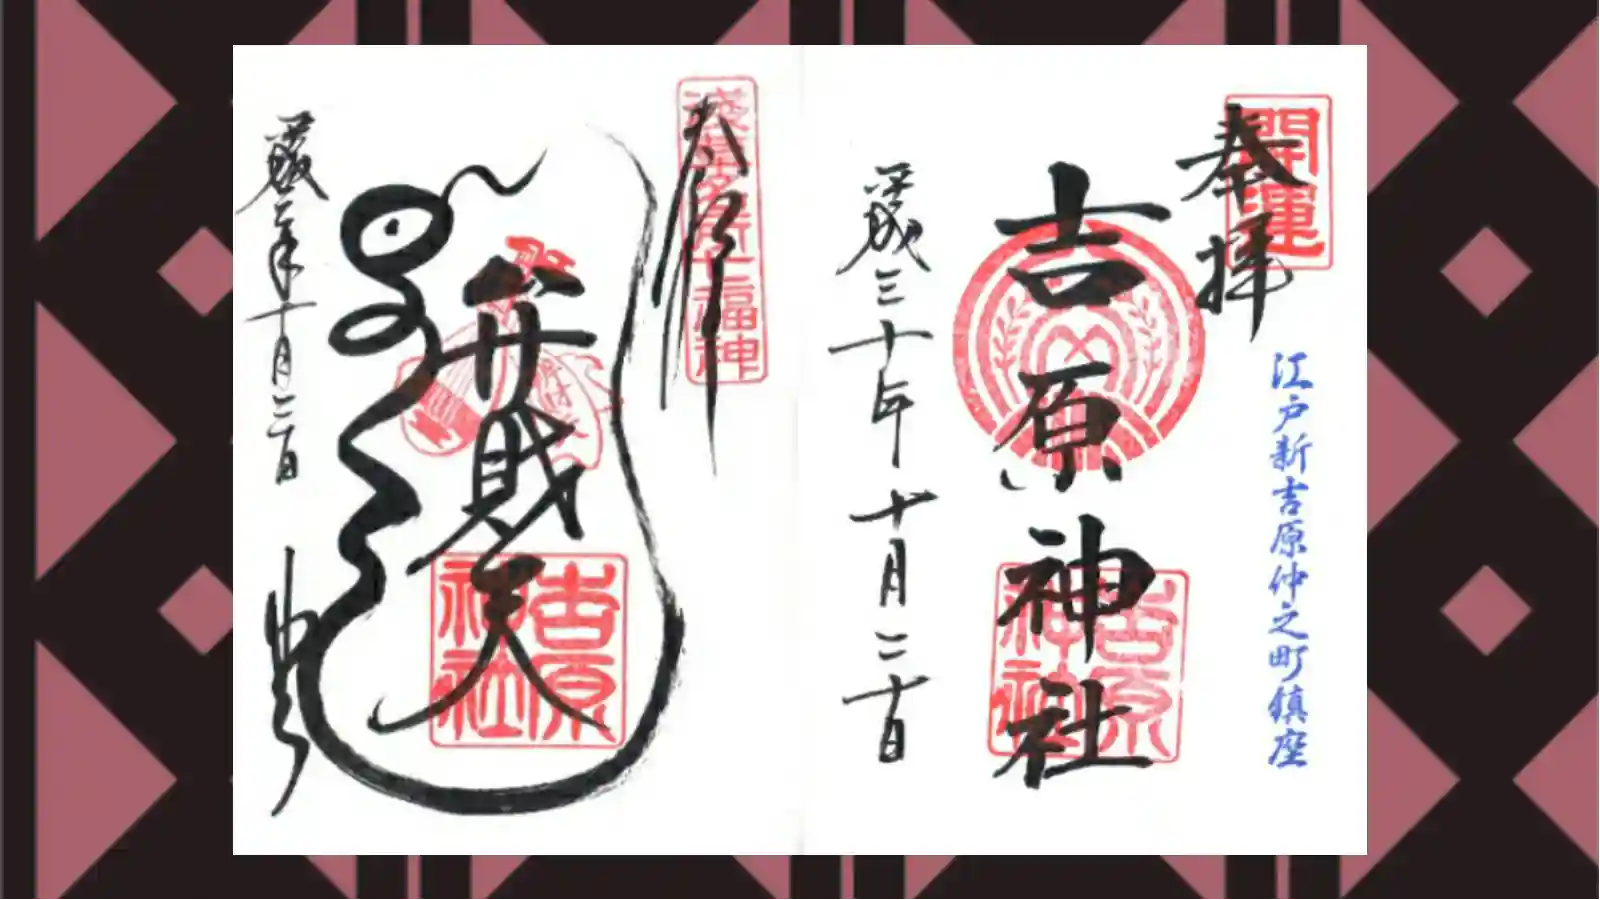 開運
奉拝
江戸新吉原仲之町鎮座
吉原神社
吉原神社
平成三十年十月二十日
浅草名所七福神
奉拝
弁財天
吉原神社
十月二十日